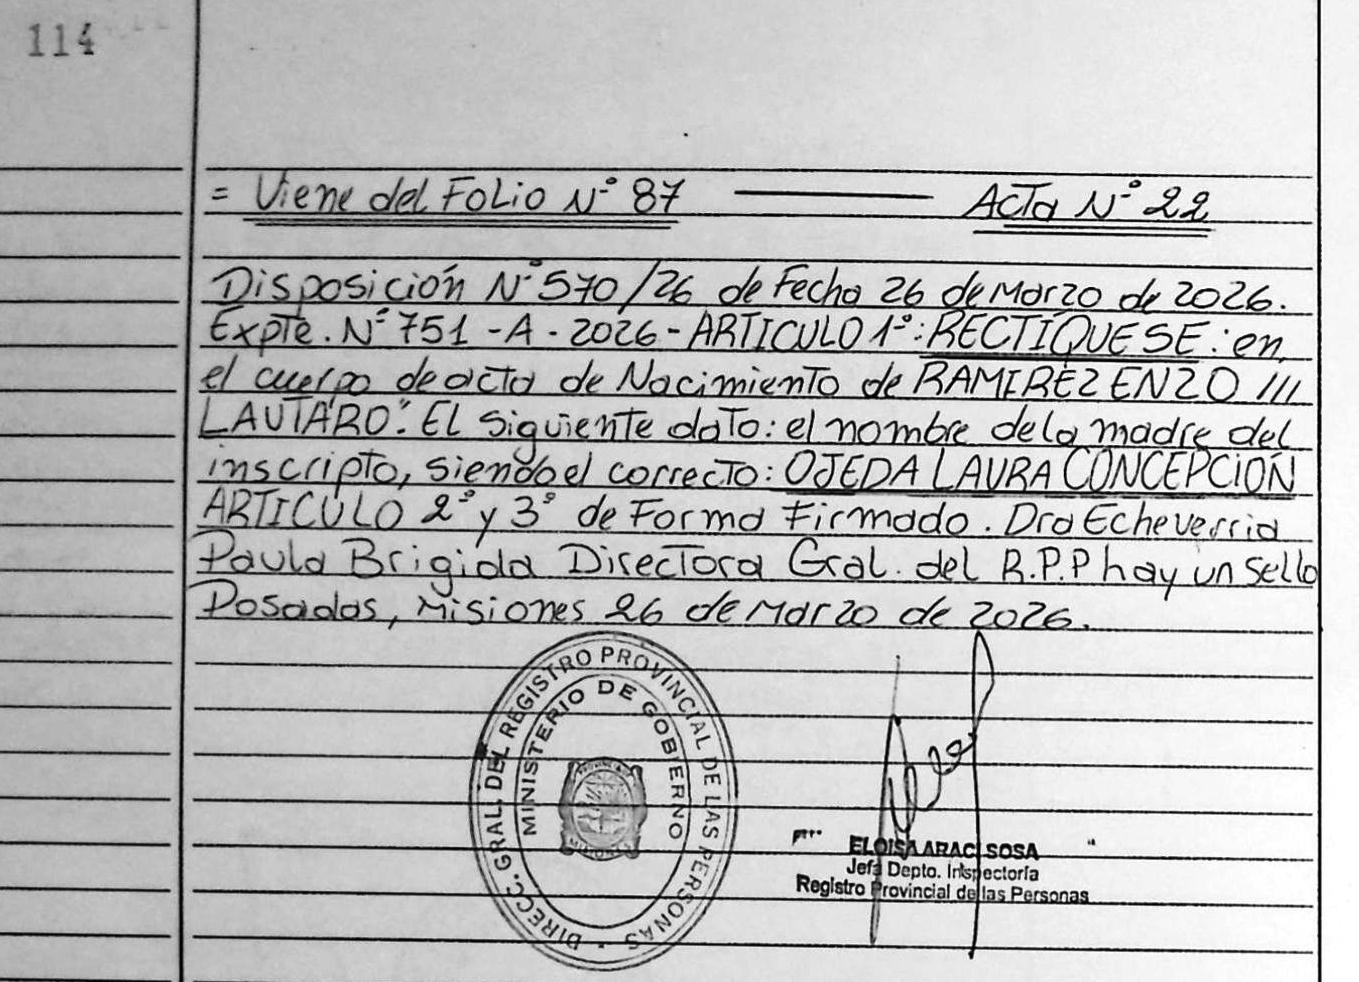 114
= Viene del Folio N° 87 ——— Acta N° 22
Disposición N° 570/26 de Fecha 26 de Marzo de 2026.
Expte. N° 751 - A - 2026 - ARTICULO 1°: RECTIQUESE: en
el cuerpo de acta de Nacimiento de RAMIREZ ENZO ///
LAUTARO": El siguiente dato: el nombre de la madre del
inscripto, siendo el correcto: OJEDA LAURA CONCEPCIÓN
ARTICULO 2° y 3° de Forma Firmado. Dra Echeverria
Paula Brigida Directora Gral. del R.P.P hay un sello
Posadas, Misiones 26 de Marzo de 2026.
DIRECC. GRAL. DEL REGISTRO PROVINCIAL DE LAS PERSONAS
MINISTERIO DE GOBIERNO
MISIONES
ELOISA ARACI SOSA
Jefa Depto. Inspectoría
Registro Provincial de las Personas